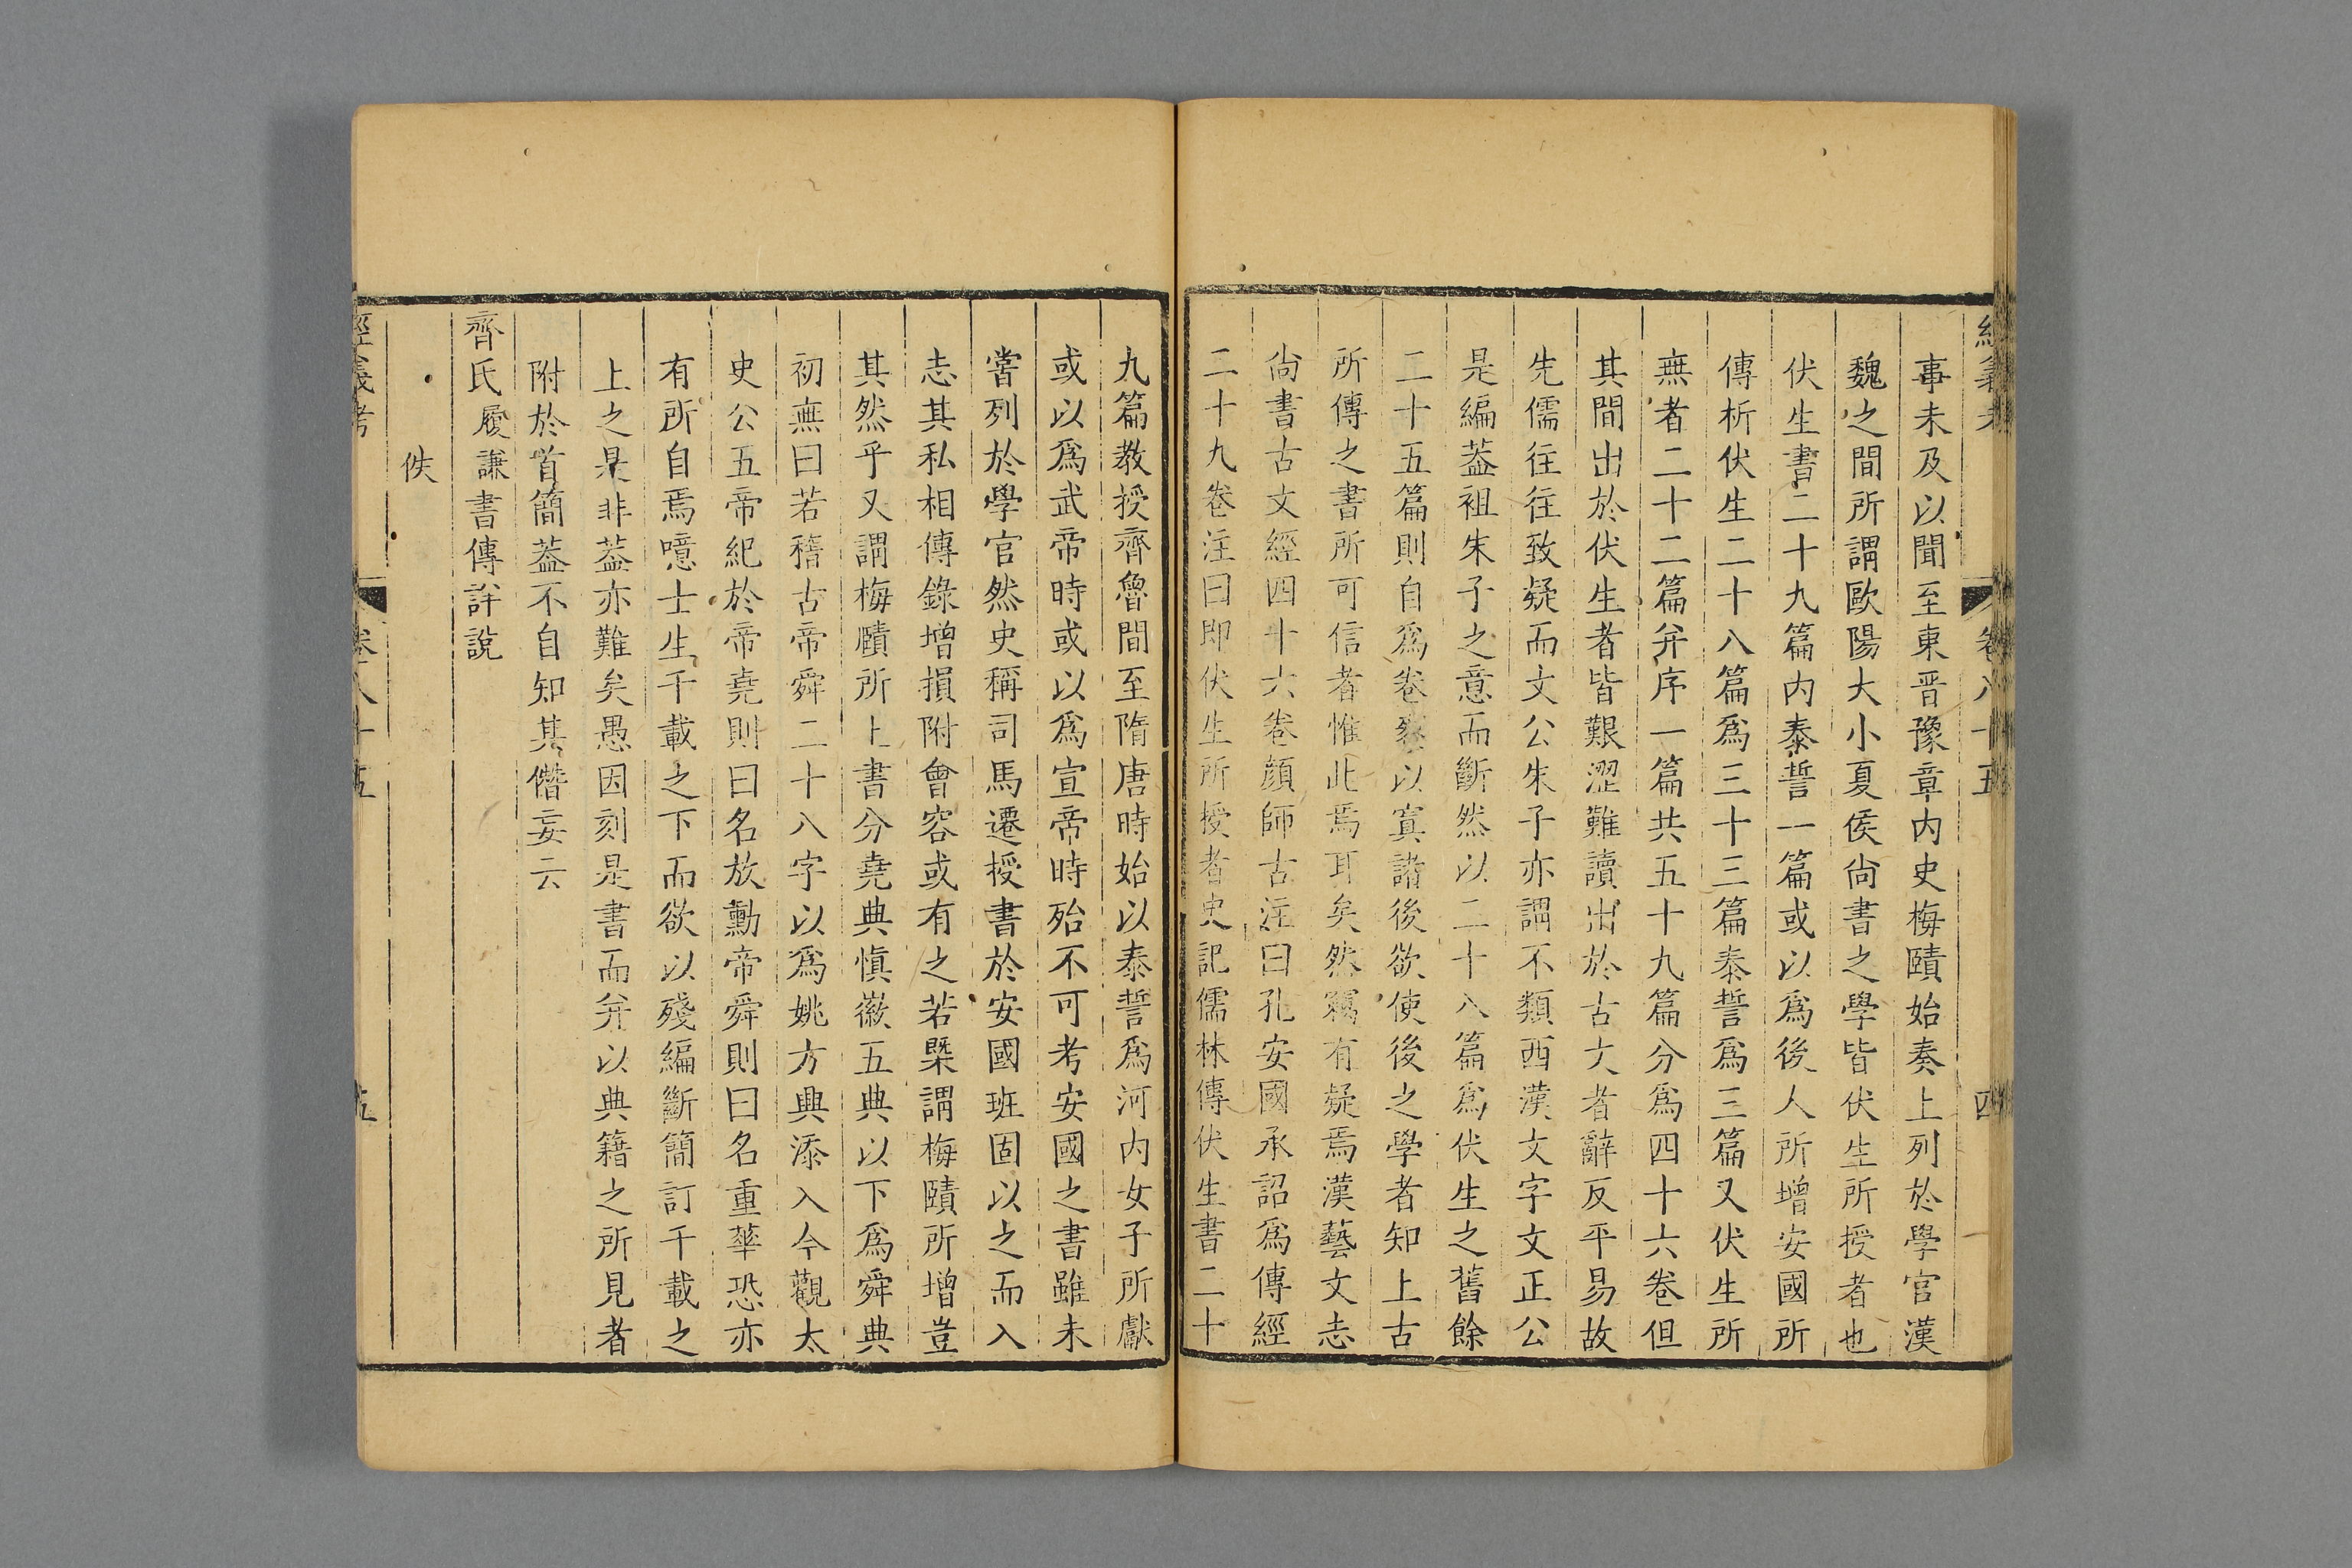 經義考 卷八十五 四
事未及以聞至東晋豫章内史梅賾始奏上列於學官漢
魏之間所謂歐陽大小夏侯尚書之學皆伏生所授者也
伏生書二十九篇内泰誓一篇或以爲後人所增安國所
傳析伏生二十八篇爲三十三篇泰誓爲三篇又伏生所
無者二十二篇弁序一篇共五十九篇分爲四十六卷但
其間出於伏生者皆艱澀難讀出於古文者辭反平易故
先儒往往致疑而文公朱子亦謂不類西漢文字文正公
是編葢祖朱子之意而斷然以二十八篇爲伏生之舊餘
二十五篇則自爲卷袠以寘諸後欲使後之學者知上古
所傳之書所可信者惟此焉耳矣然竊有疑焉漢藝文志
尚書古文經四十六卷顔師古注曰孔安國承詔爲傳經
二十九卷注曰即伏生所授者史記儒林傳伏生書二十
九篇教授齊魯間至隋唐時始以泰誓爲河内女子所獻
或以爲武帝時或以爲宣帝時殆不可考安國之書雖未
嘗列於學官然史稱司馬遷授書於安國班固以之而入
志其私相傳錄增損附會容或有之若槩謂梅賾所增豈
其然乎又謂梅賾所上書分堯典愼徽五典以下爲舜典
初無曰若稽古帝舜二十八字以爲姚方興添入今觀太
史公五帝紀於帝堯則曰名放勳帝舜則曰名重華恐亦
有所自焉噫士生千載之下而欲以殘編斷簡訂千載之
上之是非葢亦難矣愚因刻是書而弁以典籍之所見者
附於首簡葢不自知其僭妄云
齊氏履謙書傳詳說
佚
經義考 卷八十五 五